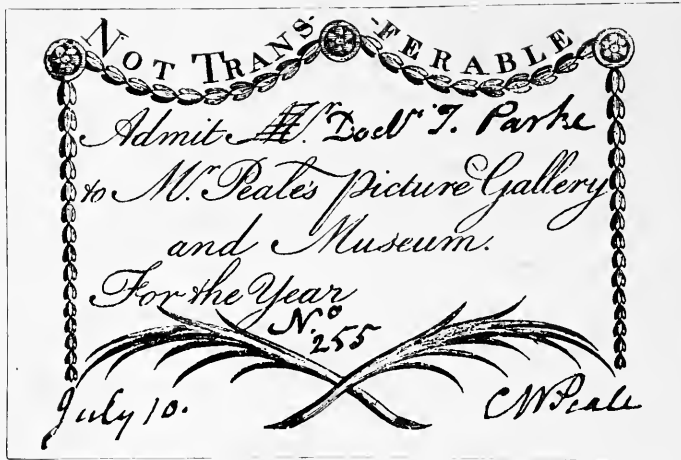 NOT TRANS- -FERABLE
Admit Mr. Docr. T. Parke
to Mr. Peale's picture Gallery
and Museum.
For the Year
No.
255
July 10. CWPeale